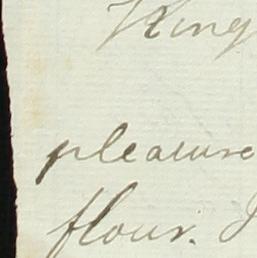 King
pleasure
flour.